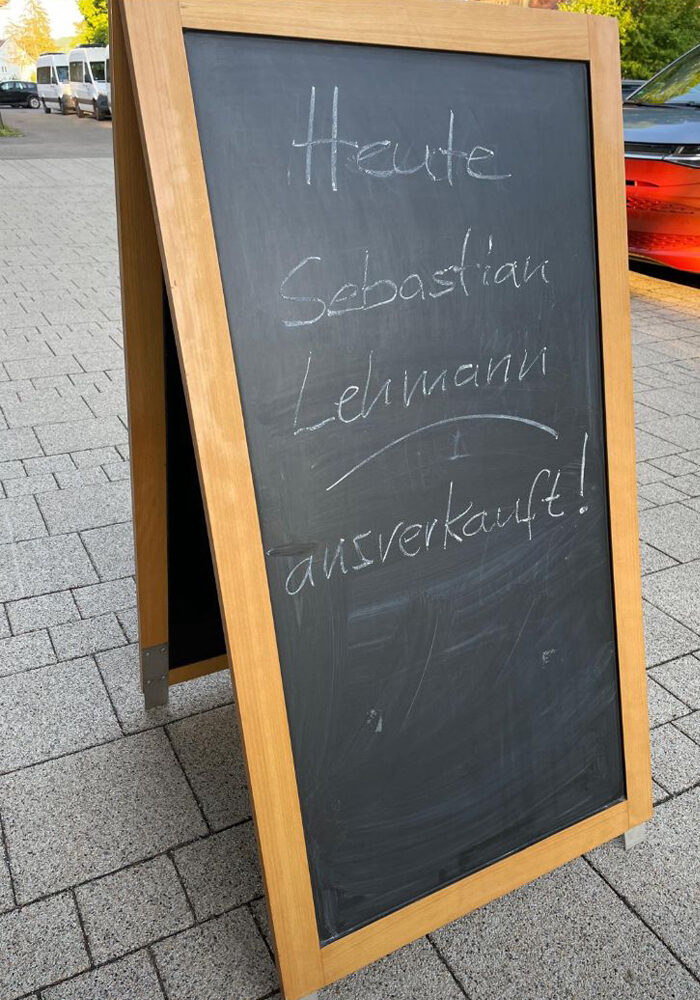 Heute
Sebastian
Lehmann
ausverkauft!